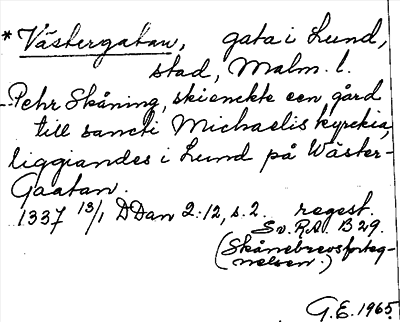 * Västergatan, gata i Lund,
stad, Malm. l.
-Pehr Skåning, skienckte een gård
till sancti Michaelis kyrckia,
liggiandes i Lund på Wäster-
Gaatan.
1337 13/1 DDan 2:12, s. 2. regest.
Sv. R.A. B 29.
(Skånebrevsforteg-
nelsen.)
G.E. 1965.